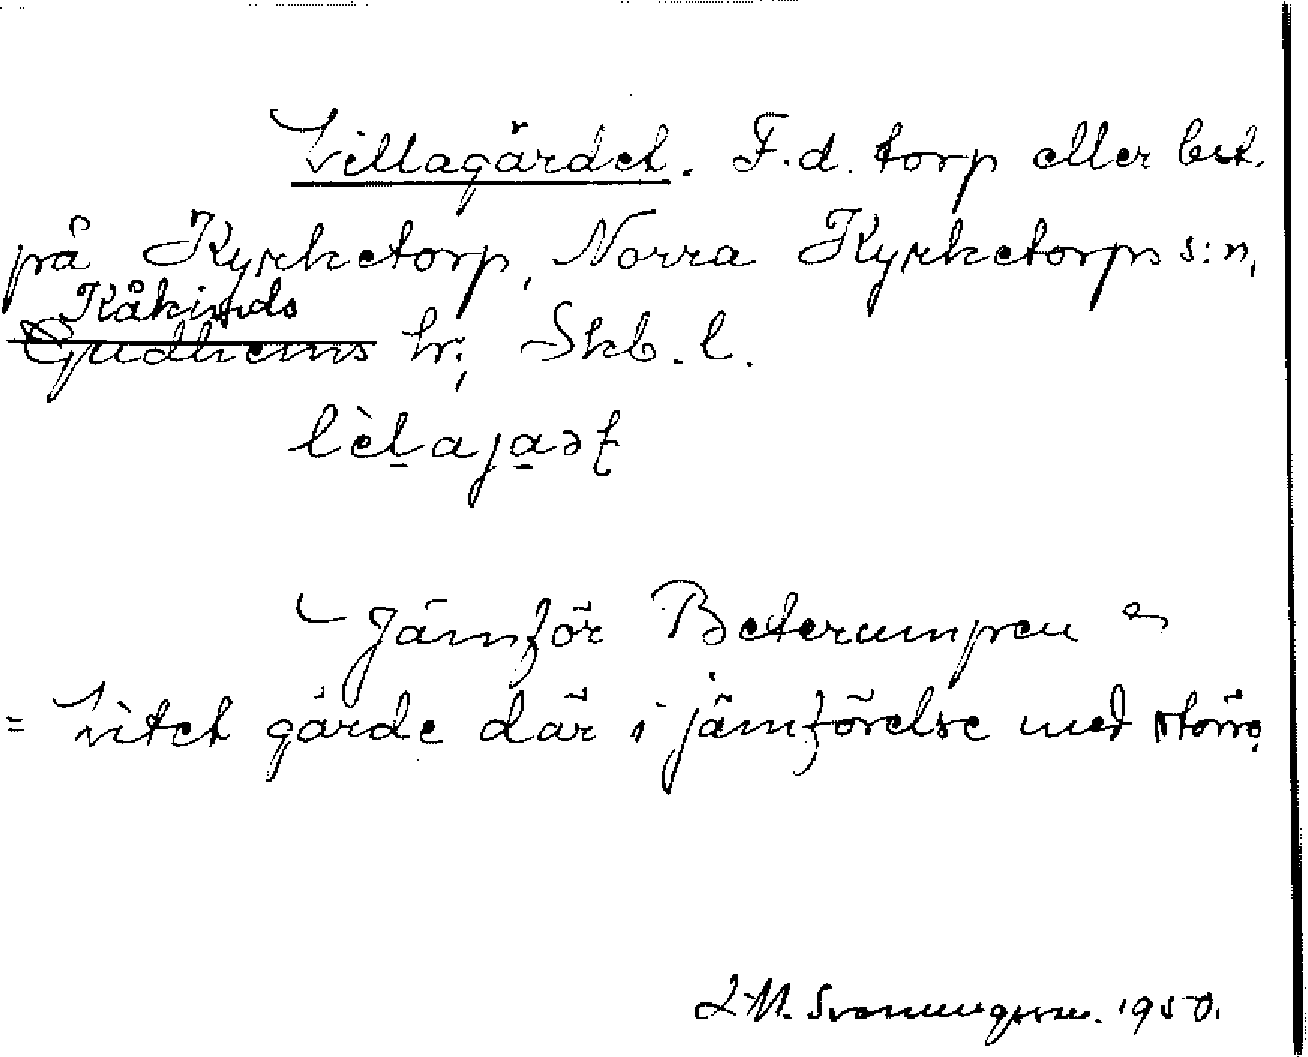 Lillagärdet. F.d. torp eller lert.
på Kyrketorp, Norra Kyrketorps s:n,
Kåkinds
Gudhems hr; Skb. l.
Jämför Beterumpen
= Litet gärde där i jämförelse med större
1950.